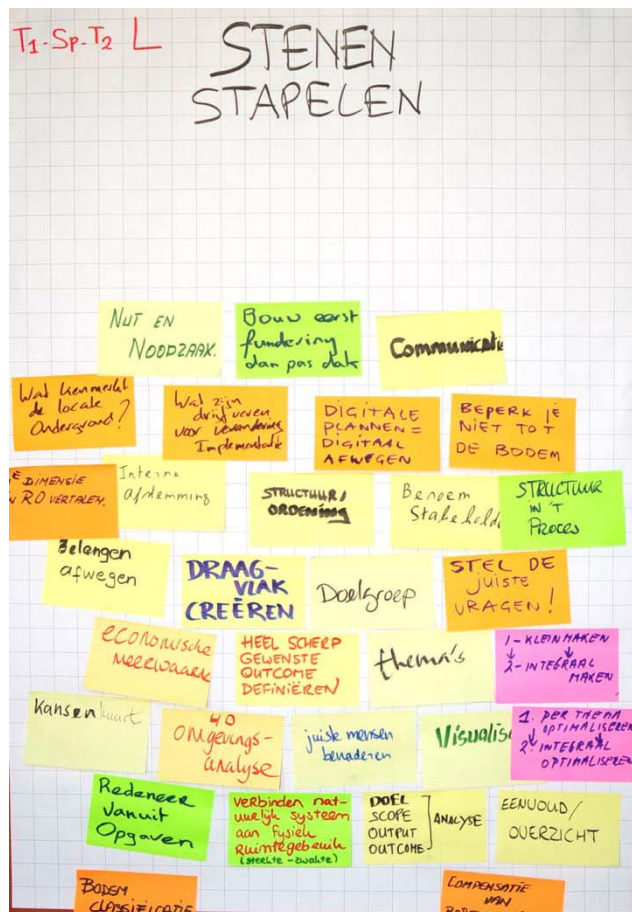 T1-Sp-T2 L
STENEN
STAPELEN
NUT EN
NOODZAAK.
Bouw eerst
fundering
dan pas dak
Communicatie
Wat kenmerkt
de locale
Ondergrond?
Wat zijn
drijfveren
voor verandering
Implementatie
DIGITALE
PLANNEN =
DIGITAAL
AFWEGEN
BEPERK JE
NIET TOT
DE BODEM
E DIMENSIE
RO VERTALEN.
Interne
afstemming
STRUCTUUR/
ORDENING
Benoem
Stakehold
STRUCTUUR
IN 'T
PROCES
Belangen
afwegen
DRAAG-
VLAK
CREËREN
Doelgroep
STEL DE
JUISTE
VRAGEN!
economische
MEERWAARDE
HEEL SCHERP
GEWENSTE
OUTCOME
DEFINIËREN
thema's
1 - KLEIN MAKEN
↓ ↓
2 - INTEGRAAL
MAKEN
Kansenkaart
4D
Omgevings-
analyse
juiste mensen
benaderen
Visualise
1. PER THEMA
OPTIMALISEREN
↓ ↓
2. INTEGRAAL
OPTIMALISEREN
Redeneer
vanuit
Opgaven
Verbinden nat-
uurlijk systeem
aan fysiek
Ruimtegebruik
(sterkte - zwakte)
DOEL
SCOPE
OUTPUT
OUTCOME
ANALYSE
EENVOUD/
OVERZICHT
BODEM
CLASSIFICATIE
COMPENSATIE
VAN